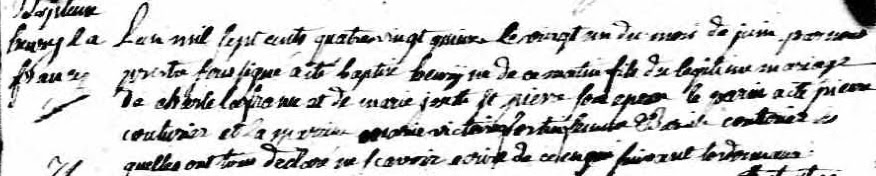 L'an mil sept cents quatre vingt quinze le vingt un du mois de juin par nous
prestre sousigne a ete baptisé henry né de ce matin fils du legitime mariage
de charle lafranc et de marie st pierre son epouse le parin a ete pierre
couturier et la marine marie victoire fortin femme Basile couturier les
quelles ont tous declaré ne scavoir ecrire de ce enqui suivant lordonnance